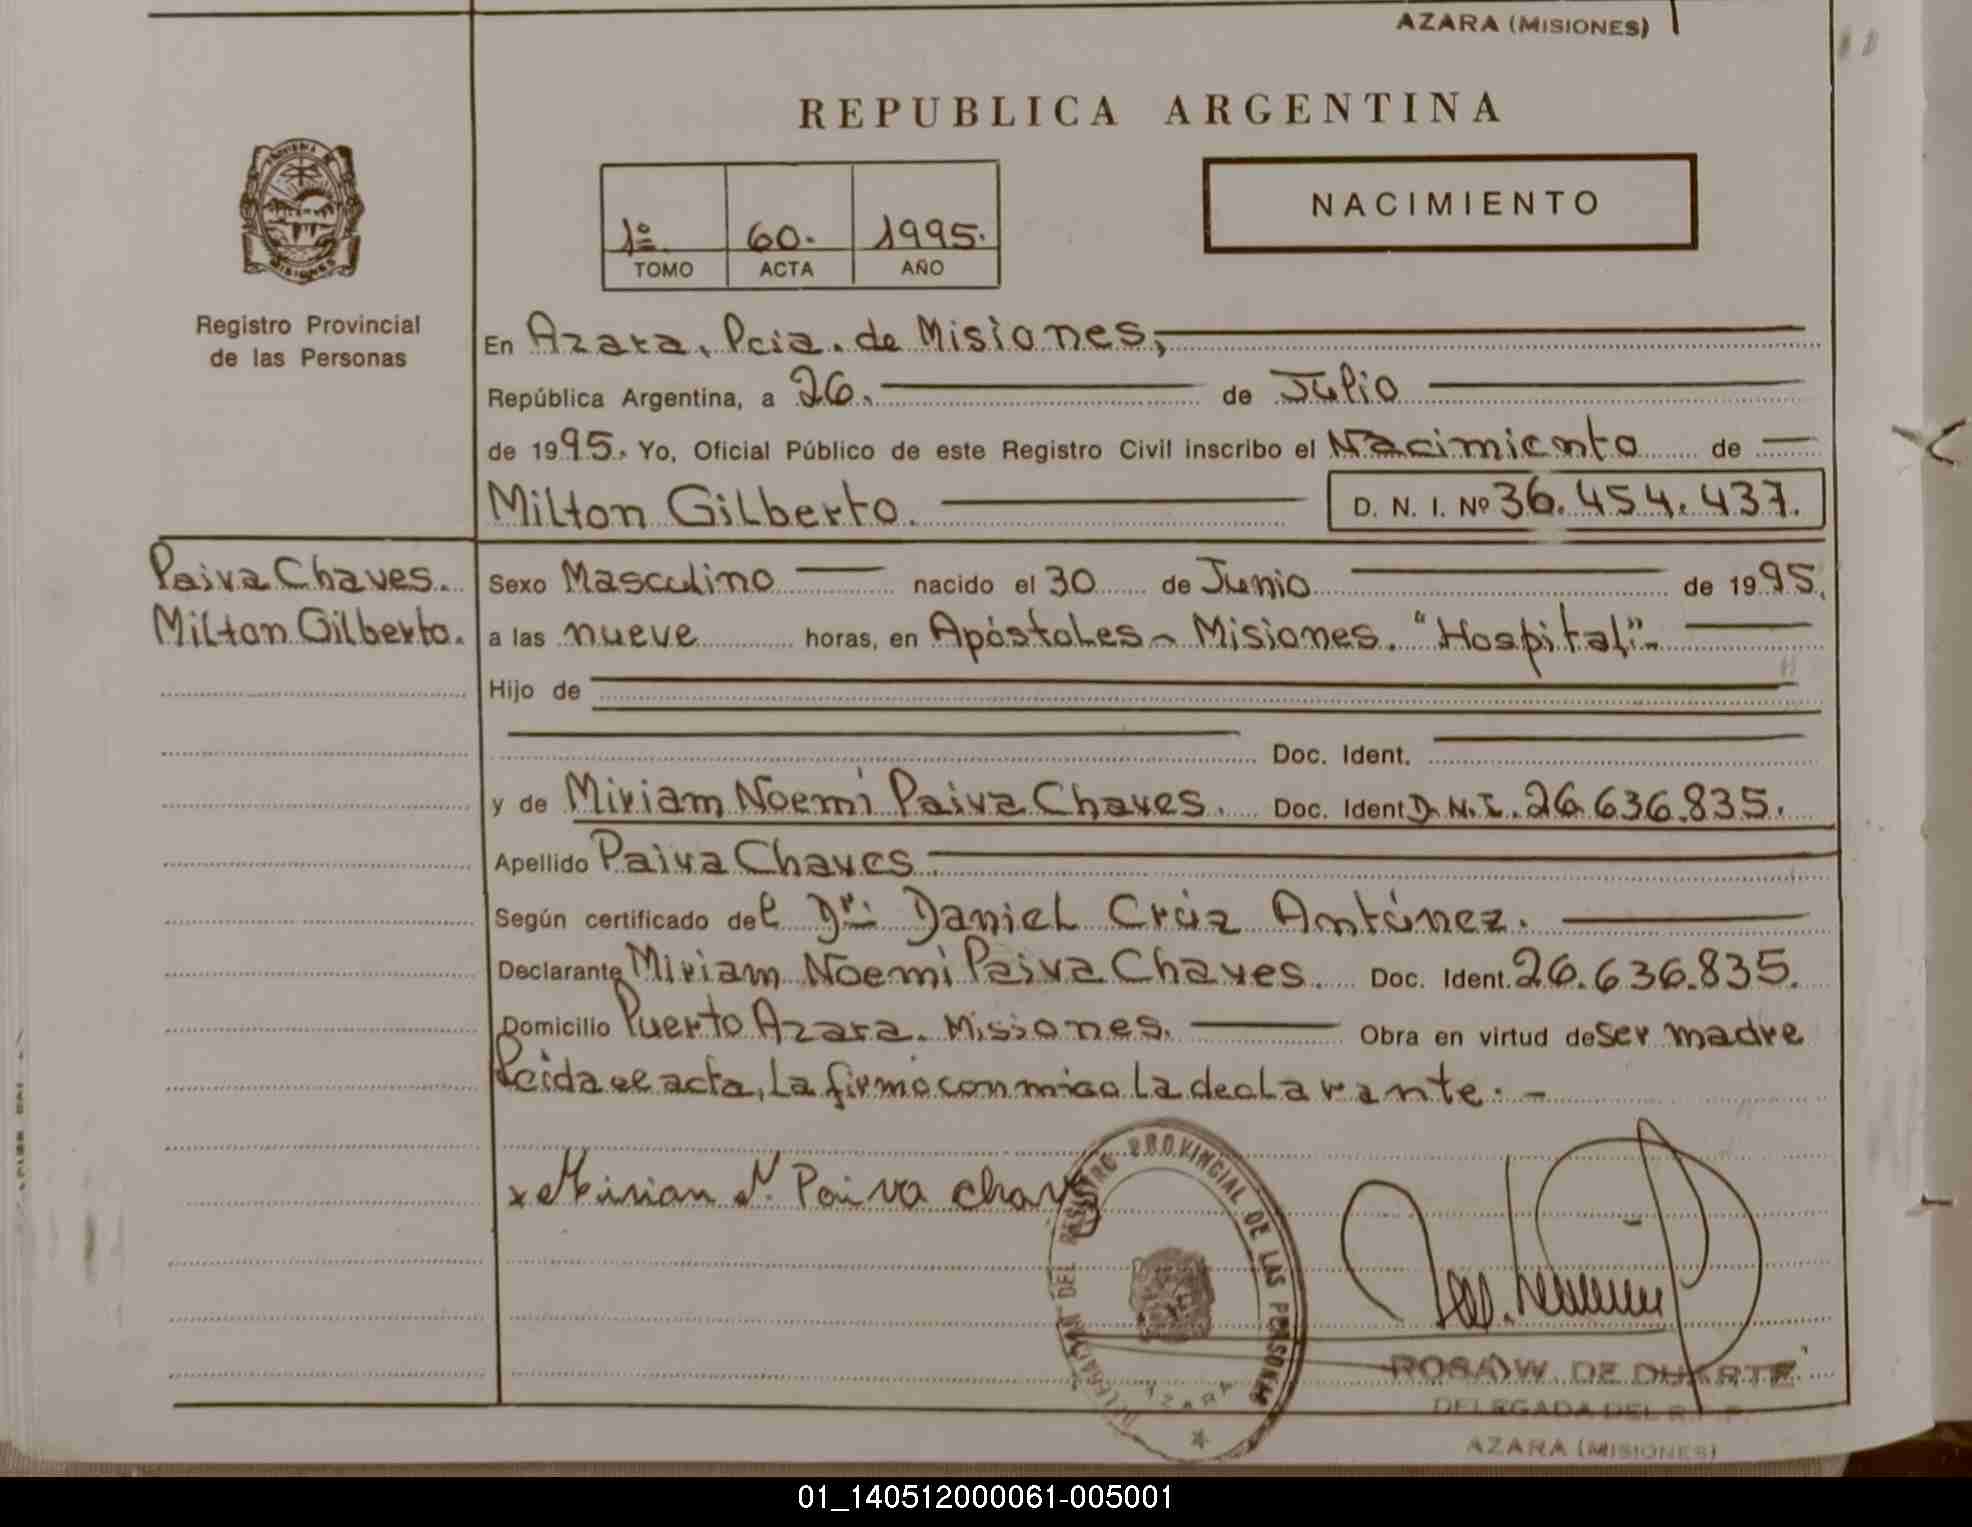 AZARA (MISIONES)
REPUBLICA ARGENTINA
NACIMIENTO
1º 60. 1995.
TOMO ACTA AÑO
PROVINCIA DE
MISIONES
Registro Provincial
de las Personas
En Azara, Pcia. de Misiones,
República Argentina, a 26. de Julio
de 1995. Yo, Oficial Público de este Registro Civil inscribo el Nacimiento de
Milton Gilberto. D. N. I. Nº 36.454.437.
Paiva Chaves.
Milton Gilberto.
Sexo Masculino nacido el 30 de Junio de 1995.
a las nueve horas, en Apóstoles - Misiones. "Hospital".-
Hijo de
Doc. Ident.
y de Miriam Noemi Paiva Chaves. Doc. Ident D.N.I. 26.636.835.
Apellido Paiva Chaves
Según certificado del Dr. Daniel Crúz Antúnez.
Declarante Miriam Noemi Paiva Chaves. Doc. Ident. 26.636.835.
Domicilio Puerto Azara. Misiones. Obra en virtud de ser madre
Leida el acta, la firmó conmigo la declarante. -
x Mirian N. Paiva chaves
DELEGACION DEL REGISTRO PROVINCIAL DE LAS PERSONAS
AZARA
ROSA W. DE DUARTE
DELEGADA DEL R. P. P.
AZARA (MISIONES)
01_140512000061-005001